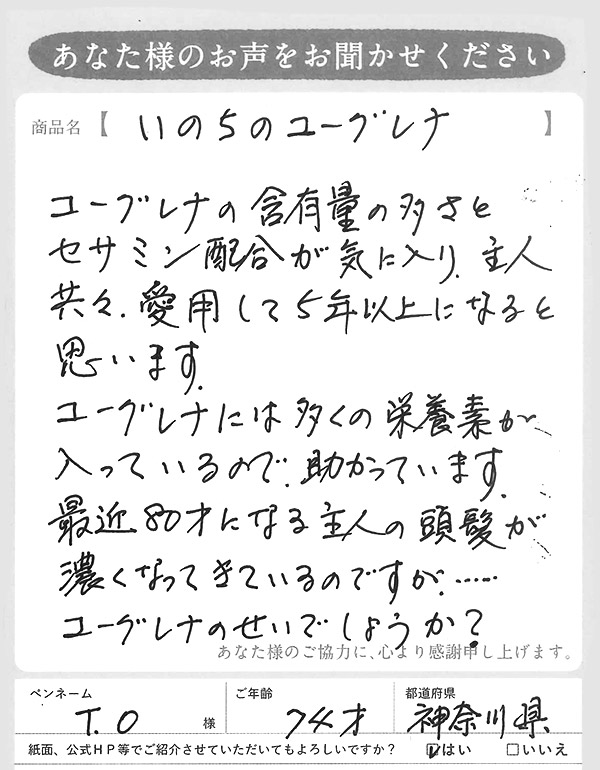 あなた様のお声をお聞かせください
商品名【 いのちのユーグレナ 】
ユーグレナの含有量の多さと
セサミン配合が気に入り、主人
共々、愛用して5年以上になると
思います。
ユーグレナには多くの栄養素が
入っているので、助かっています。
最近80才になる主人の頭髪が
濃くなってきているのですが、……
ユーグレナのせいでしょうか?
あなた様のご協力に、心より感謝申し上げます。
ペンネーム ご年齢 都道府県
T.O 様 74才 神奈川県
紙面、公式HP等でご紹介させていただいてもよろしいですか? ☑はい □いいえ